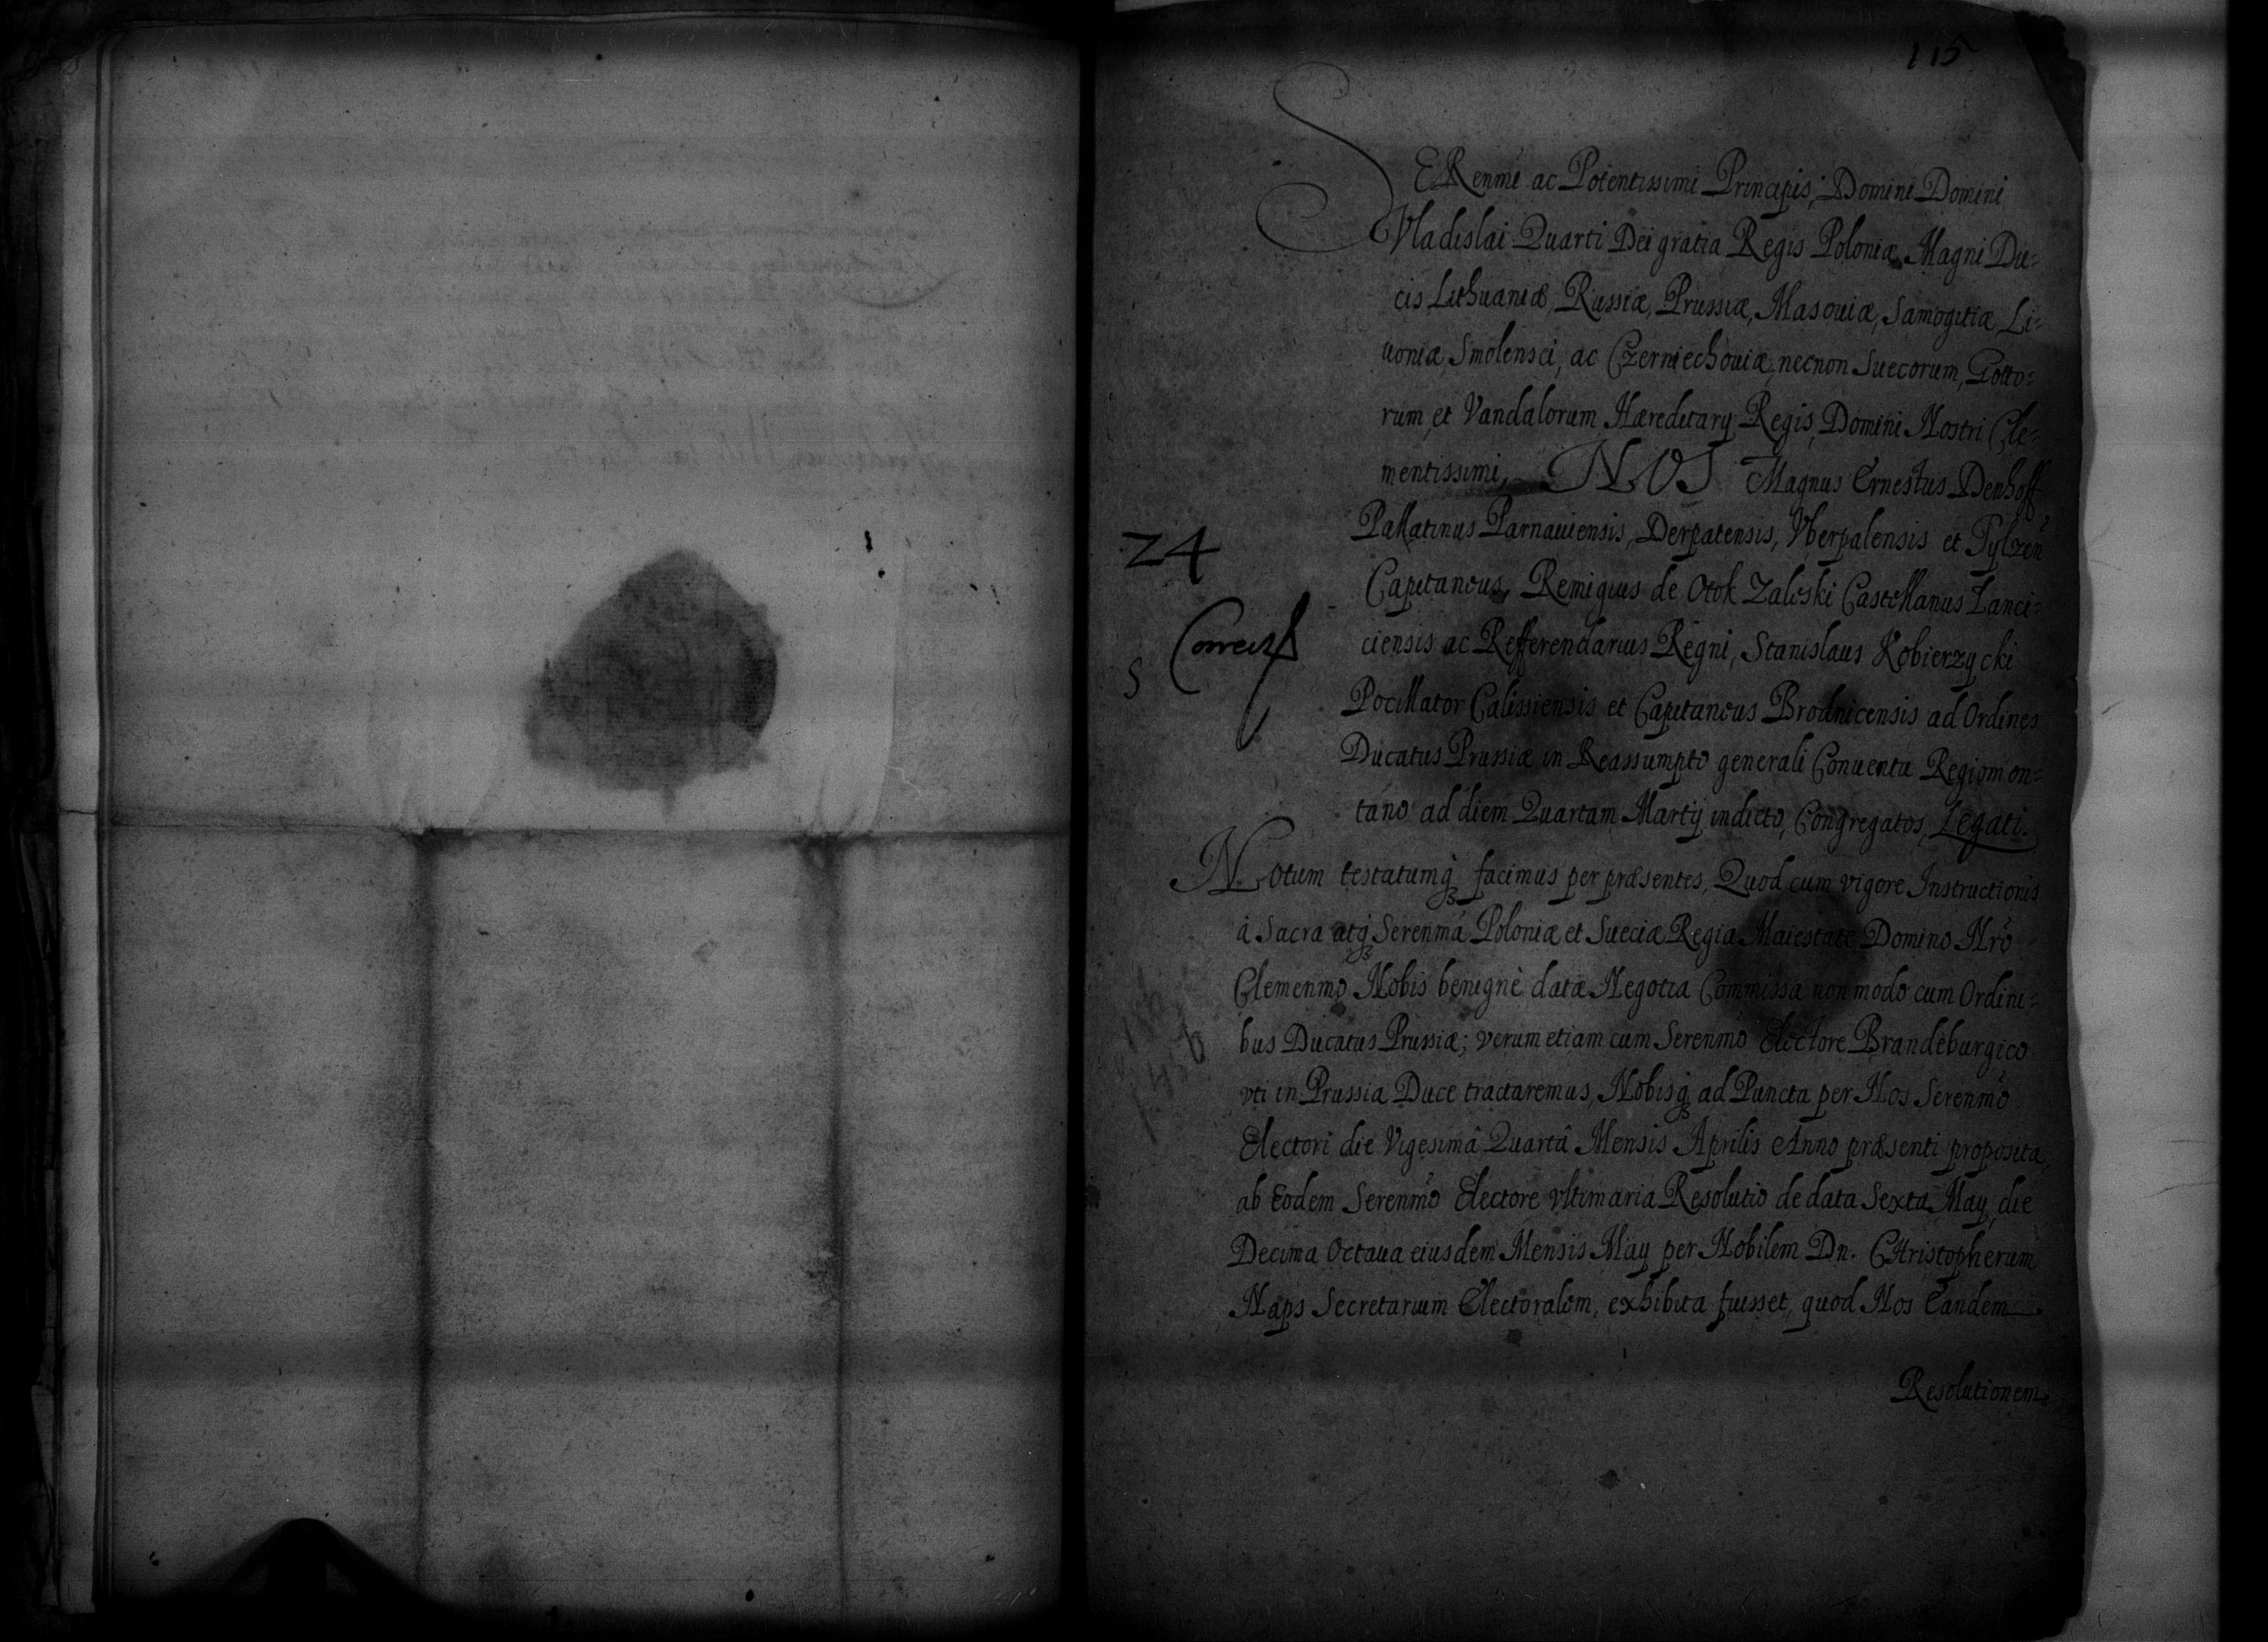 115
SERenmi ac Potentissimi Principis, Domini Domini
Vladislai Quarti Dei gratia Regis Poloniæ, Magni Du=
cis Lithuaniæ, Russiæ, Prussiæ, Masouiæ, Samogitiæ, Li=
uoniæ, Smolensci, ac Czerniechouiæ, necnon Suecorum, Gotto=
rum, et Vandalorum Hæreditarij Regis, Domini Nostri Cle=
mentissimi, NOS Magnus Ernestus Denhoff
Pallatinus Parnauiensis, Derpatensis, Vberpalensis et Tylzen̄
24
Capitaneus, Remigius de Otok Zaleski Castellanus Lanci=
ciensis ac Refferendarius Regni, Stanislaus Kobierzycki
S
Pocillator Calissiensis et Capitaneus Brodnicensis ad Ordines
Ducatus Prussiæ in Reassumpto generali Conuentu Regiomon=
tano ad diem Quartam Martij indicto, Congregatos, Legati.
Notum testatumq₃ facimus per præsentes, Quod cum vigore Instructionis
à Sacra atq₃ Serenmá Poloniæ et Sueciæ Regia Maiestate Domino Nrō
Clemenmo Nobis benignè datæ Negotia Commissa non modo cum Ordini=
bus Ducatus Prussiæ; verum etiam cum Serenmō Electore Brandeburgico
vti in Prussia Duce tractaremus, Nobisq₃ ad Puncta per Nos Serenmō
Electori die Vigesimâ Quartâ Mensis Aprilis Anno præsenti proposita,
ab Eodem Serenmō Electore vltimaria Resolutio de data Sexta May, die
Decima Octaua eiusdem Mensis May per Nobilem Dn. CHristopherum
Naps Secretarium Electoralem, exhibita fuisset, quod Nos Eandem
Resolutionem